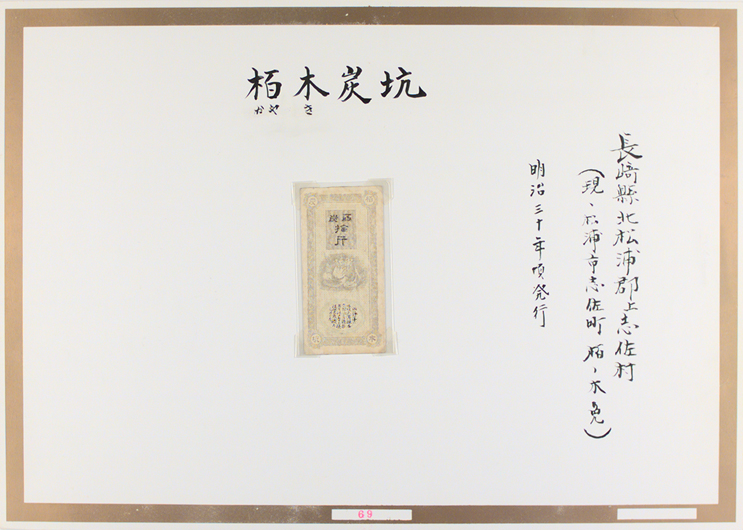 栢木炭坑
かやき
長崎縣北松浦郡上志佐村
(現、松浦市志佐町栢ノ木免)
明治三十年頃発行
石炭
拾斤
69